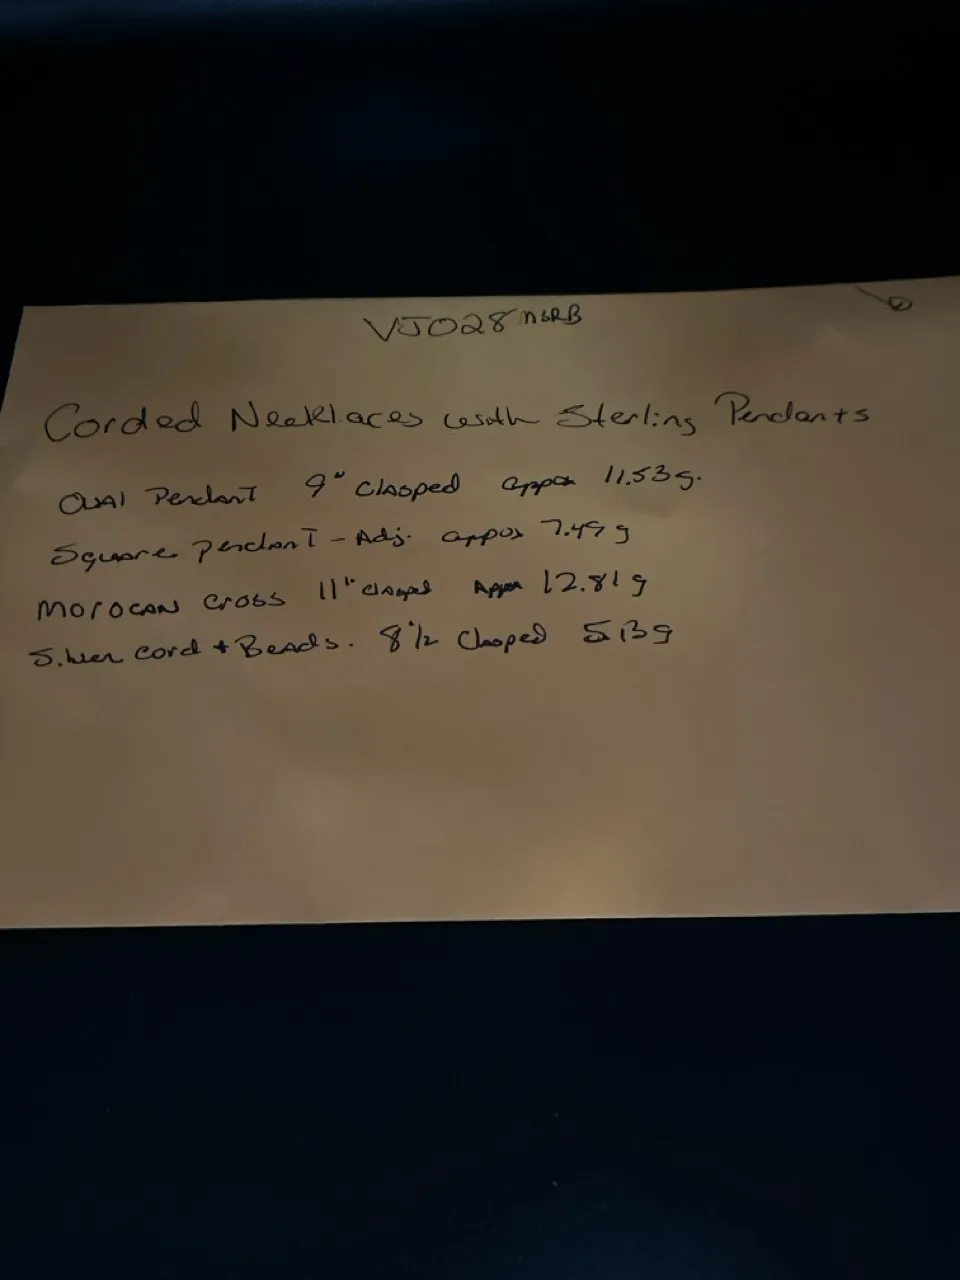 VJ028 MSRB
Corded Necklaces with Sterling Pendants
Oval Pendant 9" clasped appox 11.53g.
Square Pendant - Adj. appox 7.49 g
Morocan Cross 11" clasped Appox 12.81 g
Silver cord + Beads. 8 1/2 Clasped 5.13g